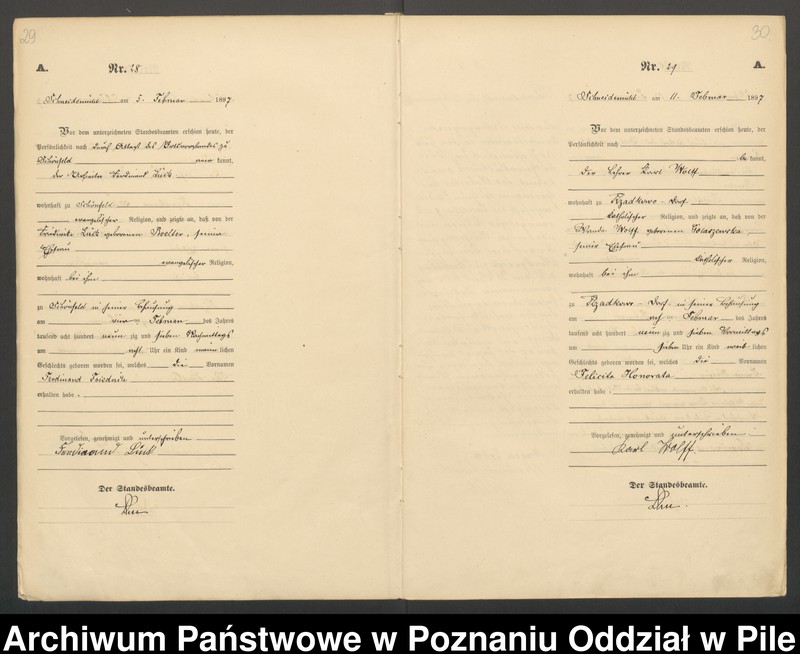 29
A.
Nr. 28
Schneidemühl am 5. Februar 1897
Vor dem unterzeichneten Standesbeamten erschien heute, der
Persönlichkeit nach durch Attest des Ortsvorstandes zu
Schönfeld kannt,
der Arbeiter Ferdinand
wohnhaft zu Schönfeld
evangelischer Religion, und zeigte an, daß von der
geborenen seine
Ehefrau
evangelischer Religion,
wohnhaft bei ihm
zu Schönfeld in seiner Behausung
am Februar des Jahres
tausend acht hundert neun zig und sieben Nachmittags
um acht Uhr ein Kind männlichen
Geschlechts geboren worden sei, welches die Vornamen
Ferdinand
erhalten habe.
Vorgelesen, genehmigt und unterschrieben
Ferdinand
Der Standesbeamte.
30
Nr. 29
A.
Schneidemühl am 11. Februar 1897
Vor dem unterzeichneten Standesbeamten erschien heute, der
Persönlichkeit nach
be kannt,
der Lehrer Karl Wolff
wohnhaft zu Rzadkowo-Dorf
katholischer Religion, und zeigte an, daß von der
Wanda Wolff geborenen
seiner Ehefrau
katholischer Religion,
wohnhaft bei ihm
zu Rzadkowo-Dorf in seiner Behausung
am Februar des Jahres
tausend acht hundert neun zig und sieben Vormittags
um sieben Uhr ein Kind weiblichen
Geschlechts geboren worden sei, welches die Vornamen
Felicita Honorata
erhalten habe.
Vorgelesen, genehmigt und unterschrieben
Karl Wolff.
Der Standesbeamte.
Archiwum Państwowe w Poznaniu Oddział w Pile